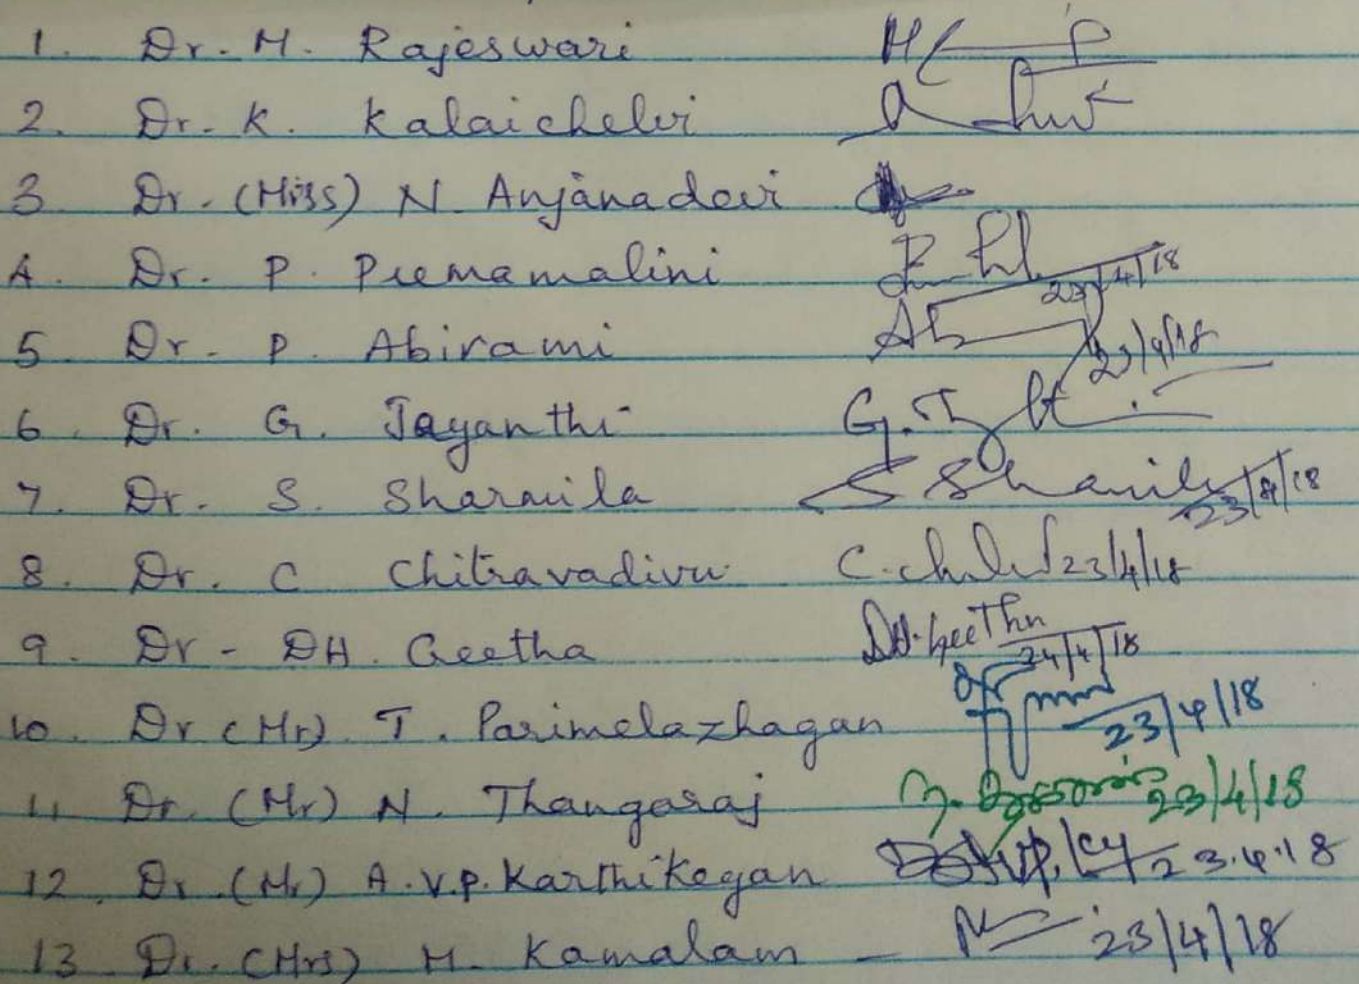 1. Dr. M. Rajeswari
2. Dr. K. Kalaichelvi
3. Dr. (Miss) N. Anjanadevi
4. Dr. P. Premamalini 23/4/18
5. Dr. P. Abirami 23/4/18
6. Dr. G. Jayanthi
7. Dr. S. Sharmila 23/4/18
8. Dr. C Chitravadivu 23/4/18
9. Dr - DH. Geetha DH. Geetha 24/4/18
10. Dr (Mr) T. Parimelazhagan 23/4/18
11. Dr. (Mr) N. Thangaraj 23/4/18
12. Dr. (Mr) A.V.P. Karthikeyan 23.4.18
13. Dr. (Mrs) M. Kamalam - 23/4/18